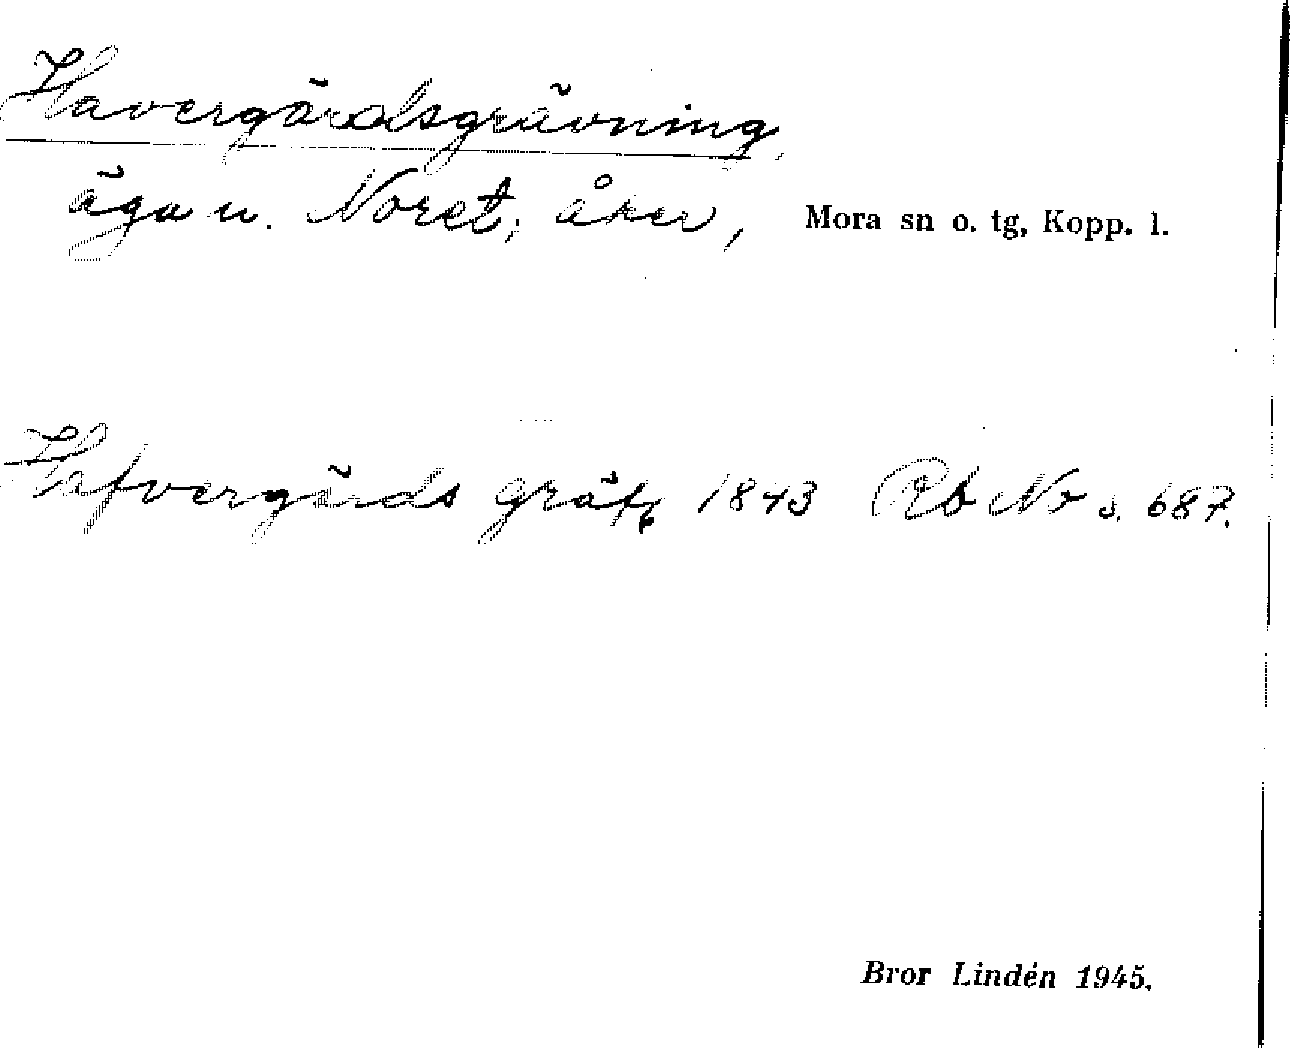 Havergärdsgrävning,
äga u. Noret; åker, Mora sn o. tg, Kopp. l.
Hafvergärds gräfg 1843 Rb No s. 687.
Bror Lindén 1945.